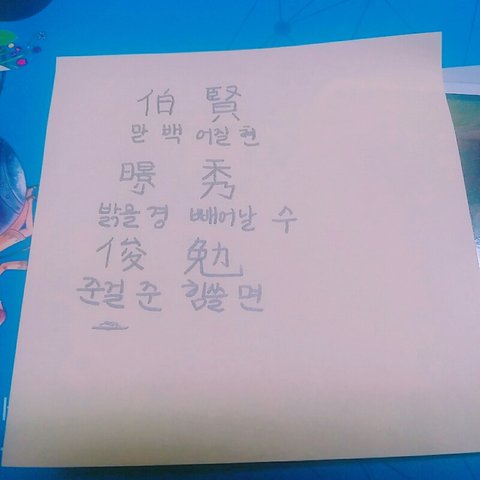 伯 賢
맏 백 어질 현
暻 秀
밝을 경 빼어날 수
俊 勉
준걸 준 힘쓸 면